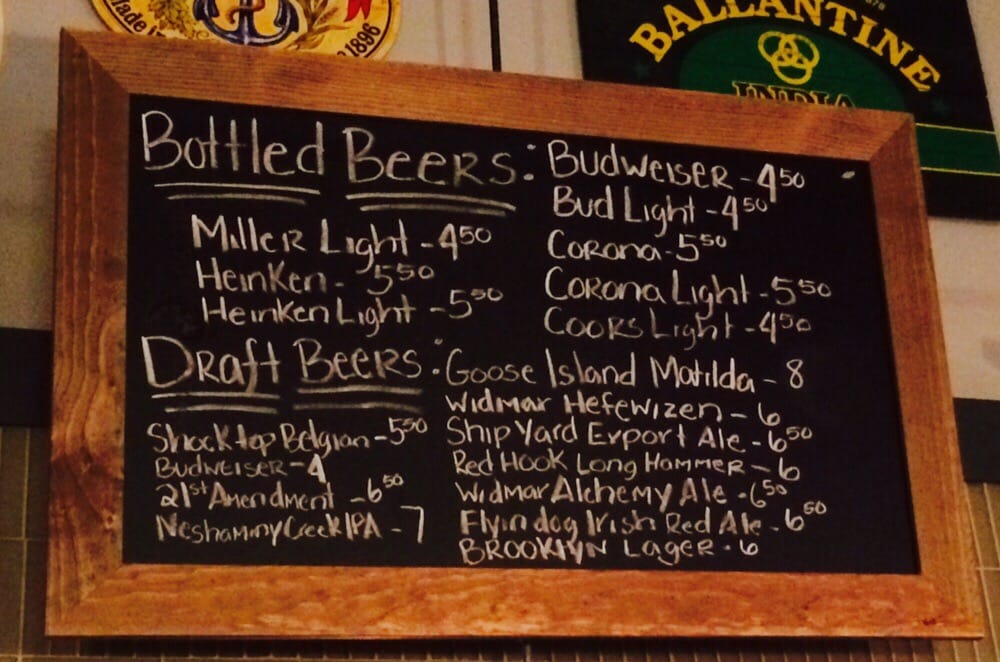 Made
1896
BALLANTINE
INDIA
Bottled Beers:
Miller Light - 4.50
Heinken - 5.50
Heinken Light - 5.50
Budweiser - 4.50
Bud Light - 4.50
Corona - 5.50
Corona Light - 5.50
Coors Light - 4.50
Draft Beers:
Shock top Belgian - 5.50
Budweiser - 4
21st Amendment - 6.50
Neshaminy Creek IPA - 7
Goose Island Matilda - 8
Widmar Hefewizen - 6
Ship Yard Export Ale - 6.50
Red Hook Long Hammer - 6
Widmar Alchemy Ale - 6.50
Flyin dog Irish Red Ale - 6.50
BROOKLYN Lager - 6